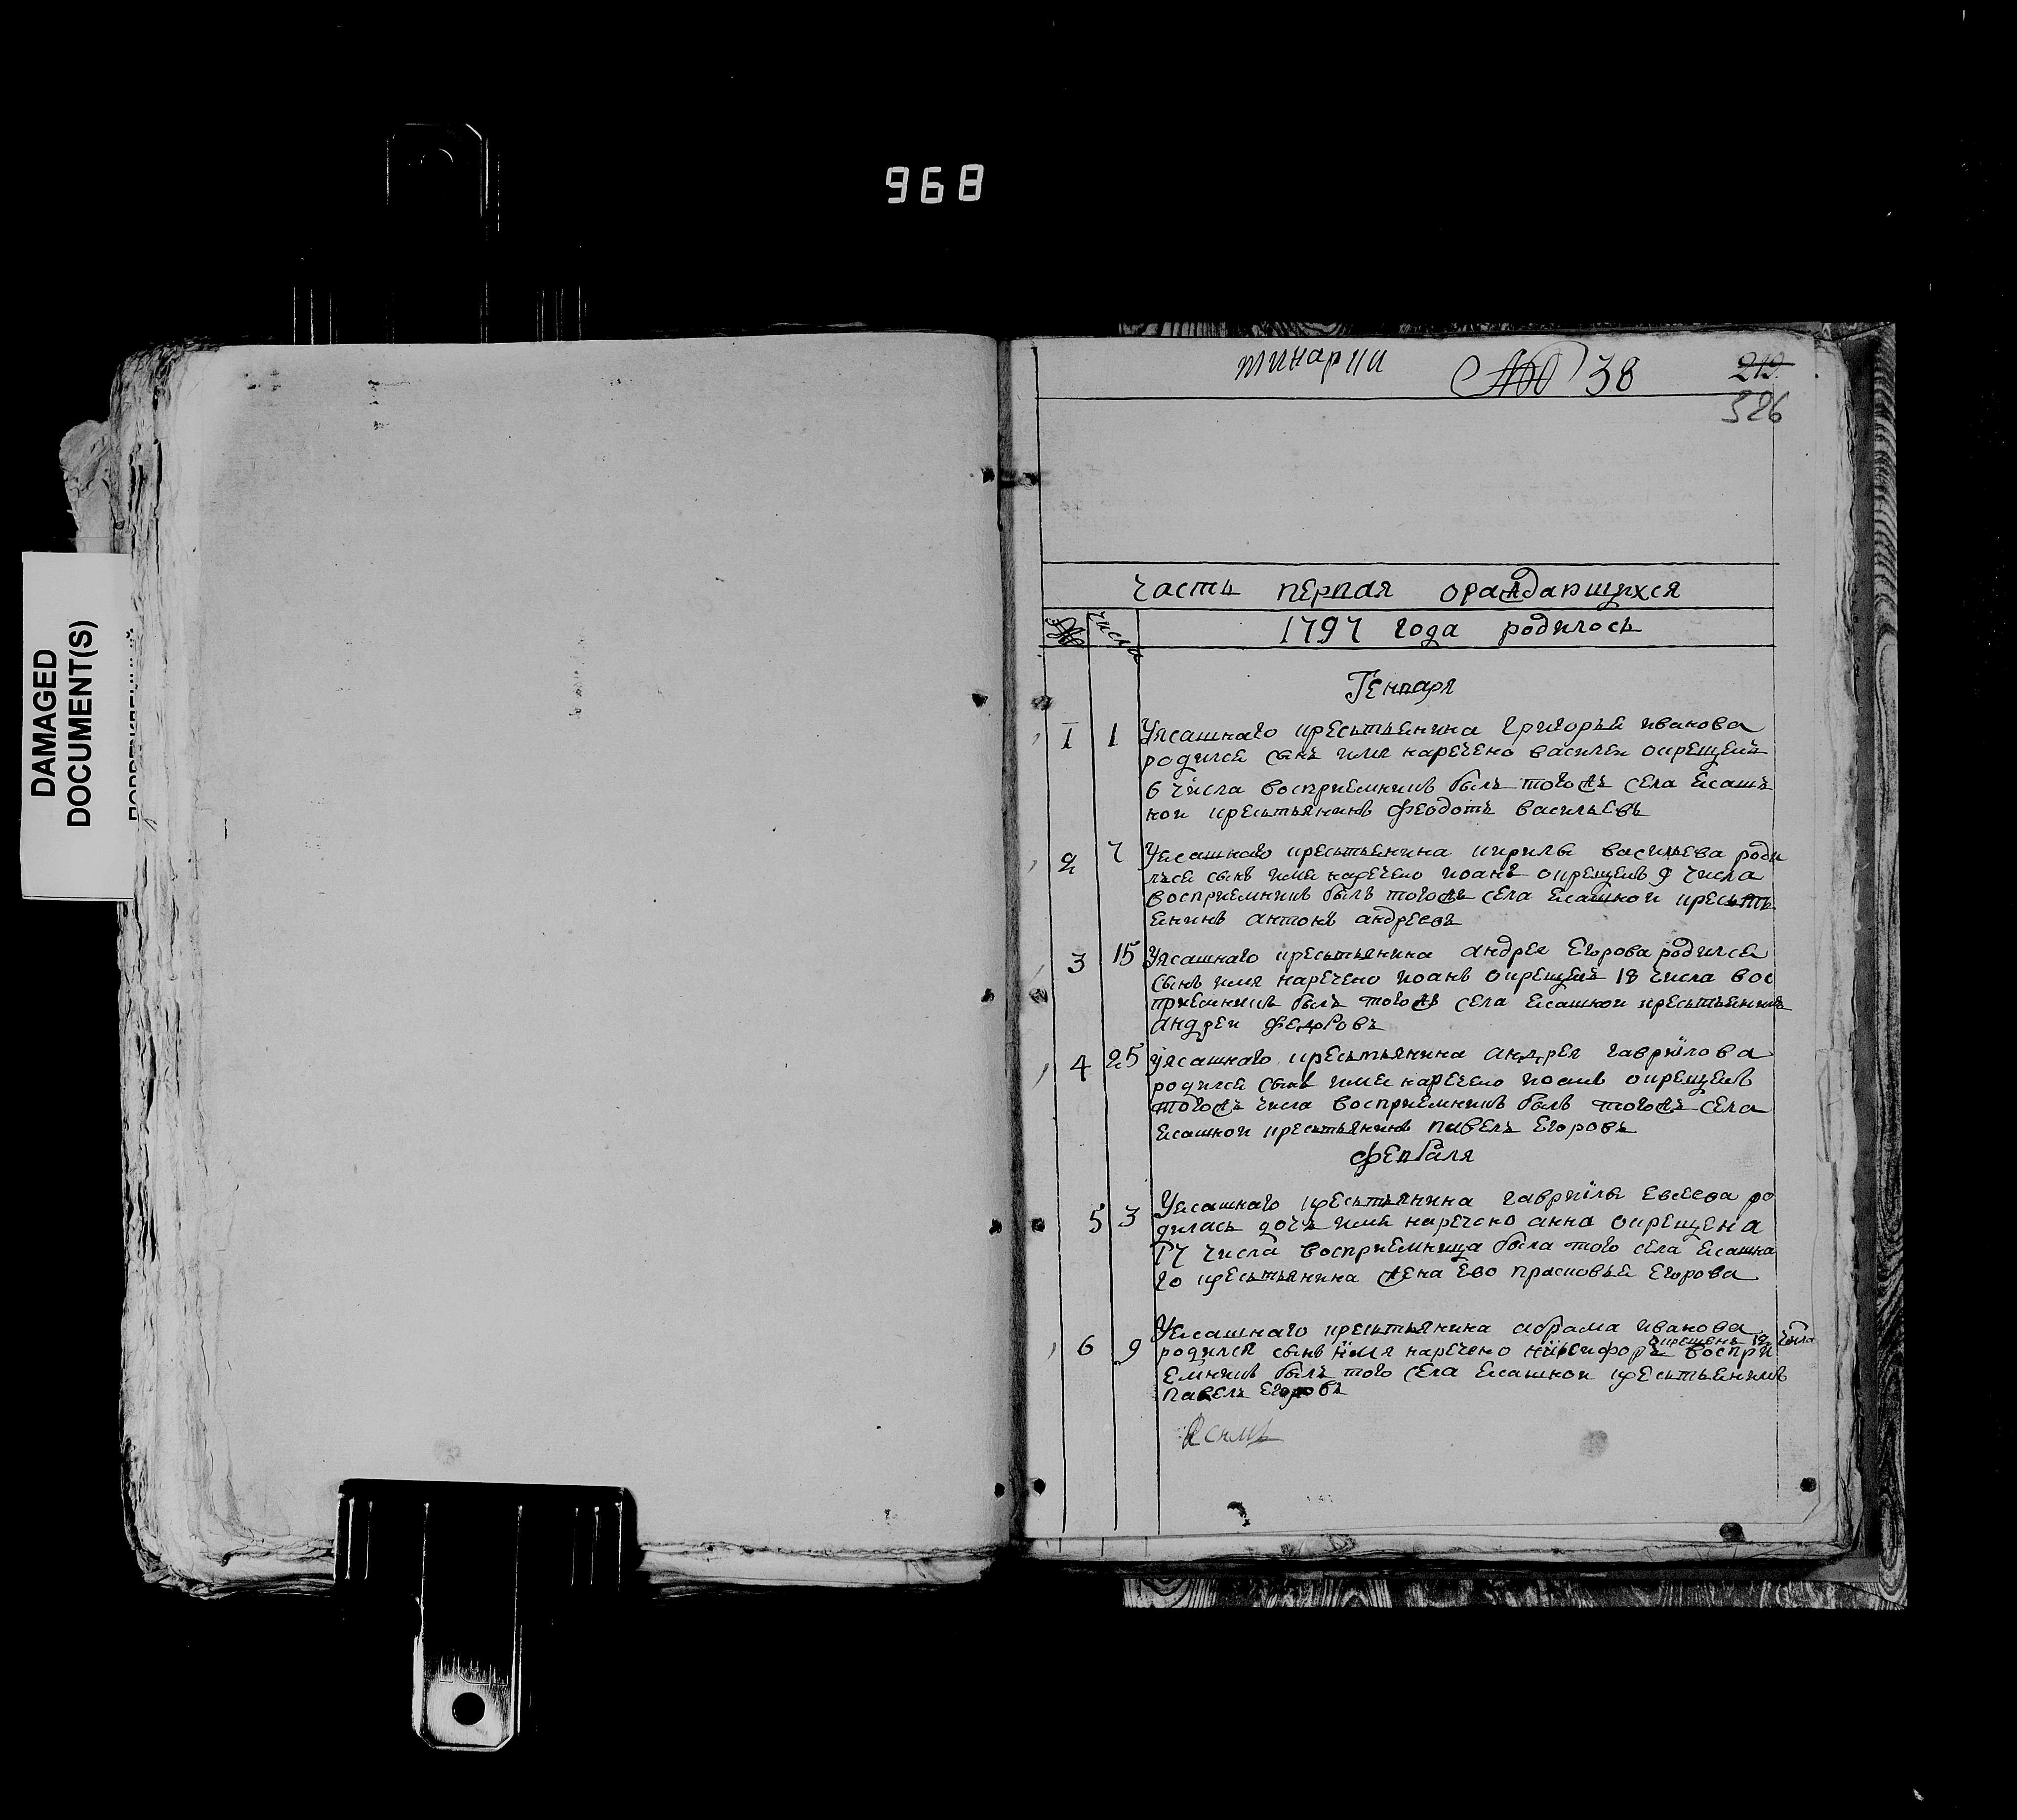 968
DAMAGED
DOCUMENT(S)
тинарии 38 219
326
часть первая ораждающихся
№ числа 1797 года родилось
Генваря
1 1 Уясашнаго крестьенина григорья иванова
родился сынъ имя наречено василеи окрещенъ
6 числа восприемникъ былъ тогожъ села Ясашъ
нои крестьянинъ Феодотъ васильевъ
2 7 Уясашнаго крестьенина кирилы васильева роди
лъся сынъ имя наречено иоанъ окрещенъ 9 числа
восприемникъ былъ тогожъ села ясашнои кресть
енинъ антонъ андреевъ
3 15 Уясашнаго крестьянина андрея Егорова родился
сынъ имя наречено иоанъ окрещенъ 18 числа вос
приемникъ былъ тогожъ села ясашнои крестьянинъ
андреи Федоровъ
4 25 уясашнаго крестьянина андрея гаврилова
родился сынъ имя наречено иоанъ окрещенъ
тогожъ числа восприемникъ былъ тогожъ села
ясашнои крестьянинъ павелъ Егоровъ
Февраля
5 3 Уясашнаго крестьянина гаврилы Евсеева ро
дилась дочь имя наречено анна окрещена
17 числа восприемница была того села ясашна
го крестьянина жена Ево прасковья Егорова
6 9 Уясашнаго крестьянина абрама иванова
родился сынъ имя наречено никифоръ окрещенъ 12 числа воспри
емникъ былъ того села ясашнои крестьенинъ
павелъ Егоровъ